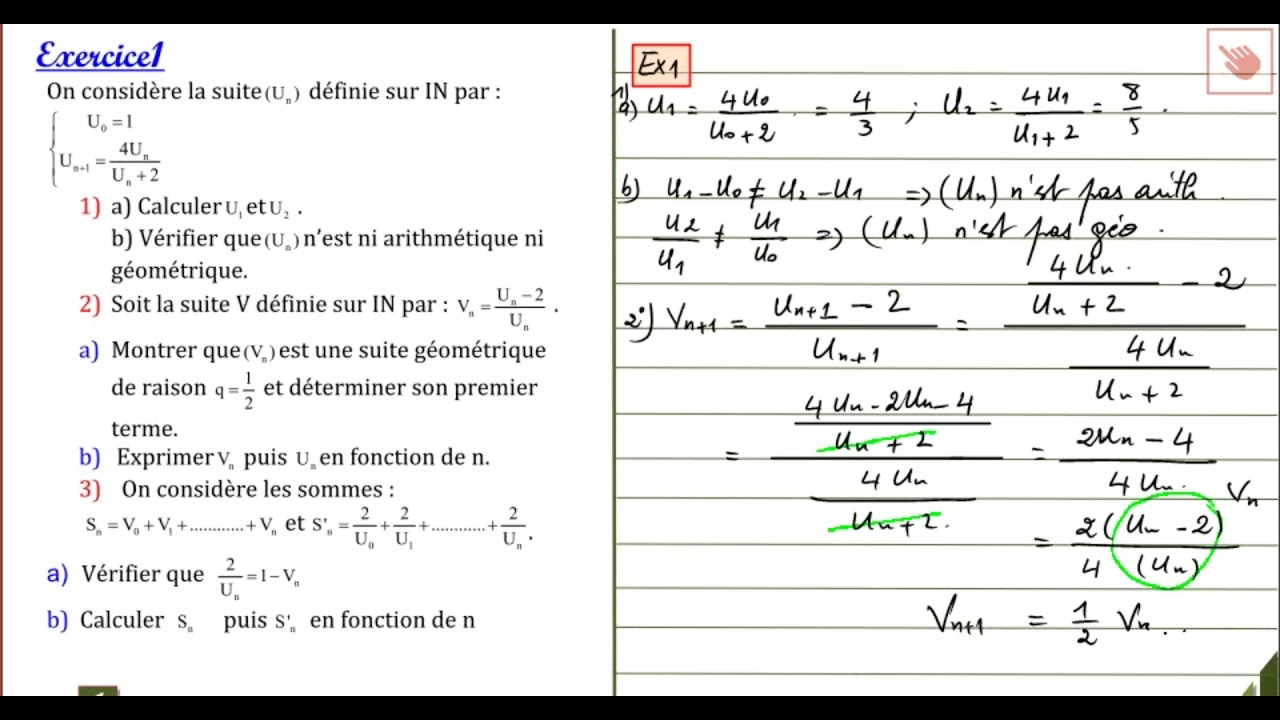 Exercice1
On considère la suite (Uₙ) définie sur IN par :
U₀ = 1
Uₙ₊₁ = 4Uₙ / (Uₙ + 2)
1) a) Calculer U₁ et U₂ .
b) Vérifier que (Uₙ) n'est ni arithmétique ni
géométrique.
2) Soit la suite V définie sur IN par : Vₙ = (Uₙ − 2) / Uₙ .
a) Montrer que (Vₙ) est une suite géométrique
de raison q = 1/2 et déterminer son premier
terme.
b) Exprimer Vₙ puis Uₙ en fonction de n.
3) On considère les sommes :
Sₙ = V₀ + V₁ + ............ + Vₙ et S'ₙ = 2/U₀ + 2/U₁ + ............ + 2/Uₙ .
a) Vérifier que 2/Uₙ = 1 − Vₙ
b) Calculer Sₙ puis S'ₙ en fonction de n
Ex1
1)
a) U₁ = 4U₀ / (U₀ + 2) = 4/3 ; U₂ = 4U₁ / (U₁ + 2) = 8/5 .
b) U₁ − U₀ ≠ U₂ − U₁ ⇒ (Uₙ) n'est pas arith .
U₂/U₁ ≠ U₁/U₀ ⇒ (Uₙ) n'est pas géo .
2°) Vₙ₊₁ = (Uₙ₊₁ − 2) / Uₙ₊₁ = (4Uₙ / (Uₙ + 2) − 2) / (4Uₙ / (Uₙ + 2))
= ((4Uₙ − 2Uₙ − 4) / (Uₙ + 2)) / (4Uₙ / (Uₙ + 2)) = (2Uₙ − 4) / 4Uₙ
Vₙ
= 2(Uₙ − 2) / 4(Uₙ)
Vₙ₊₁ = 1/2 Vₙ ..